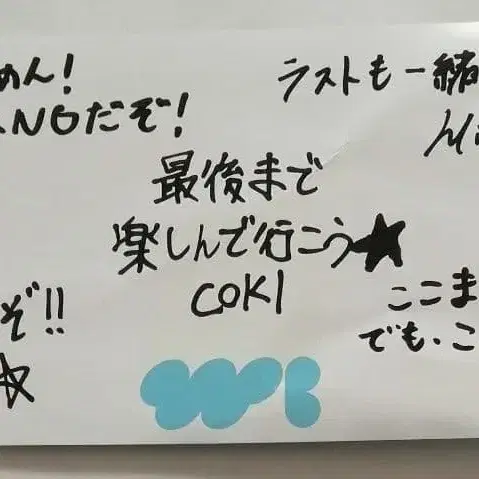 めん!
NGだぞ!
ラストも一緒
最後まで
楽しんで行こう★
COKI
ぞ!!
☆
ここま
でも、こ